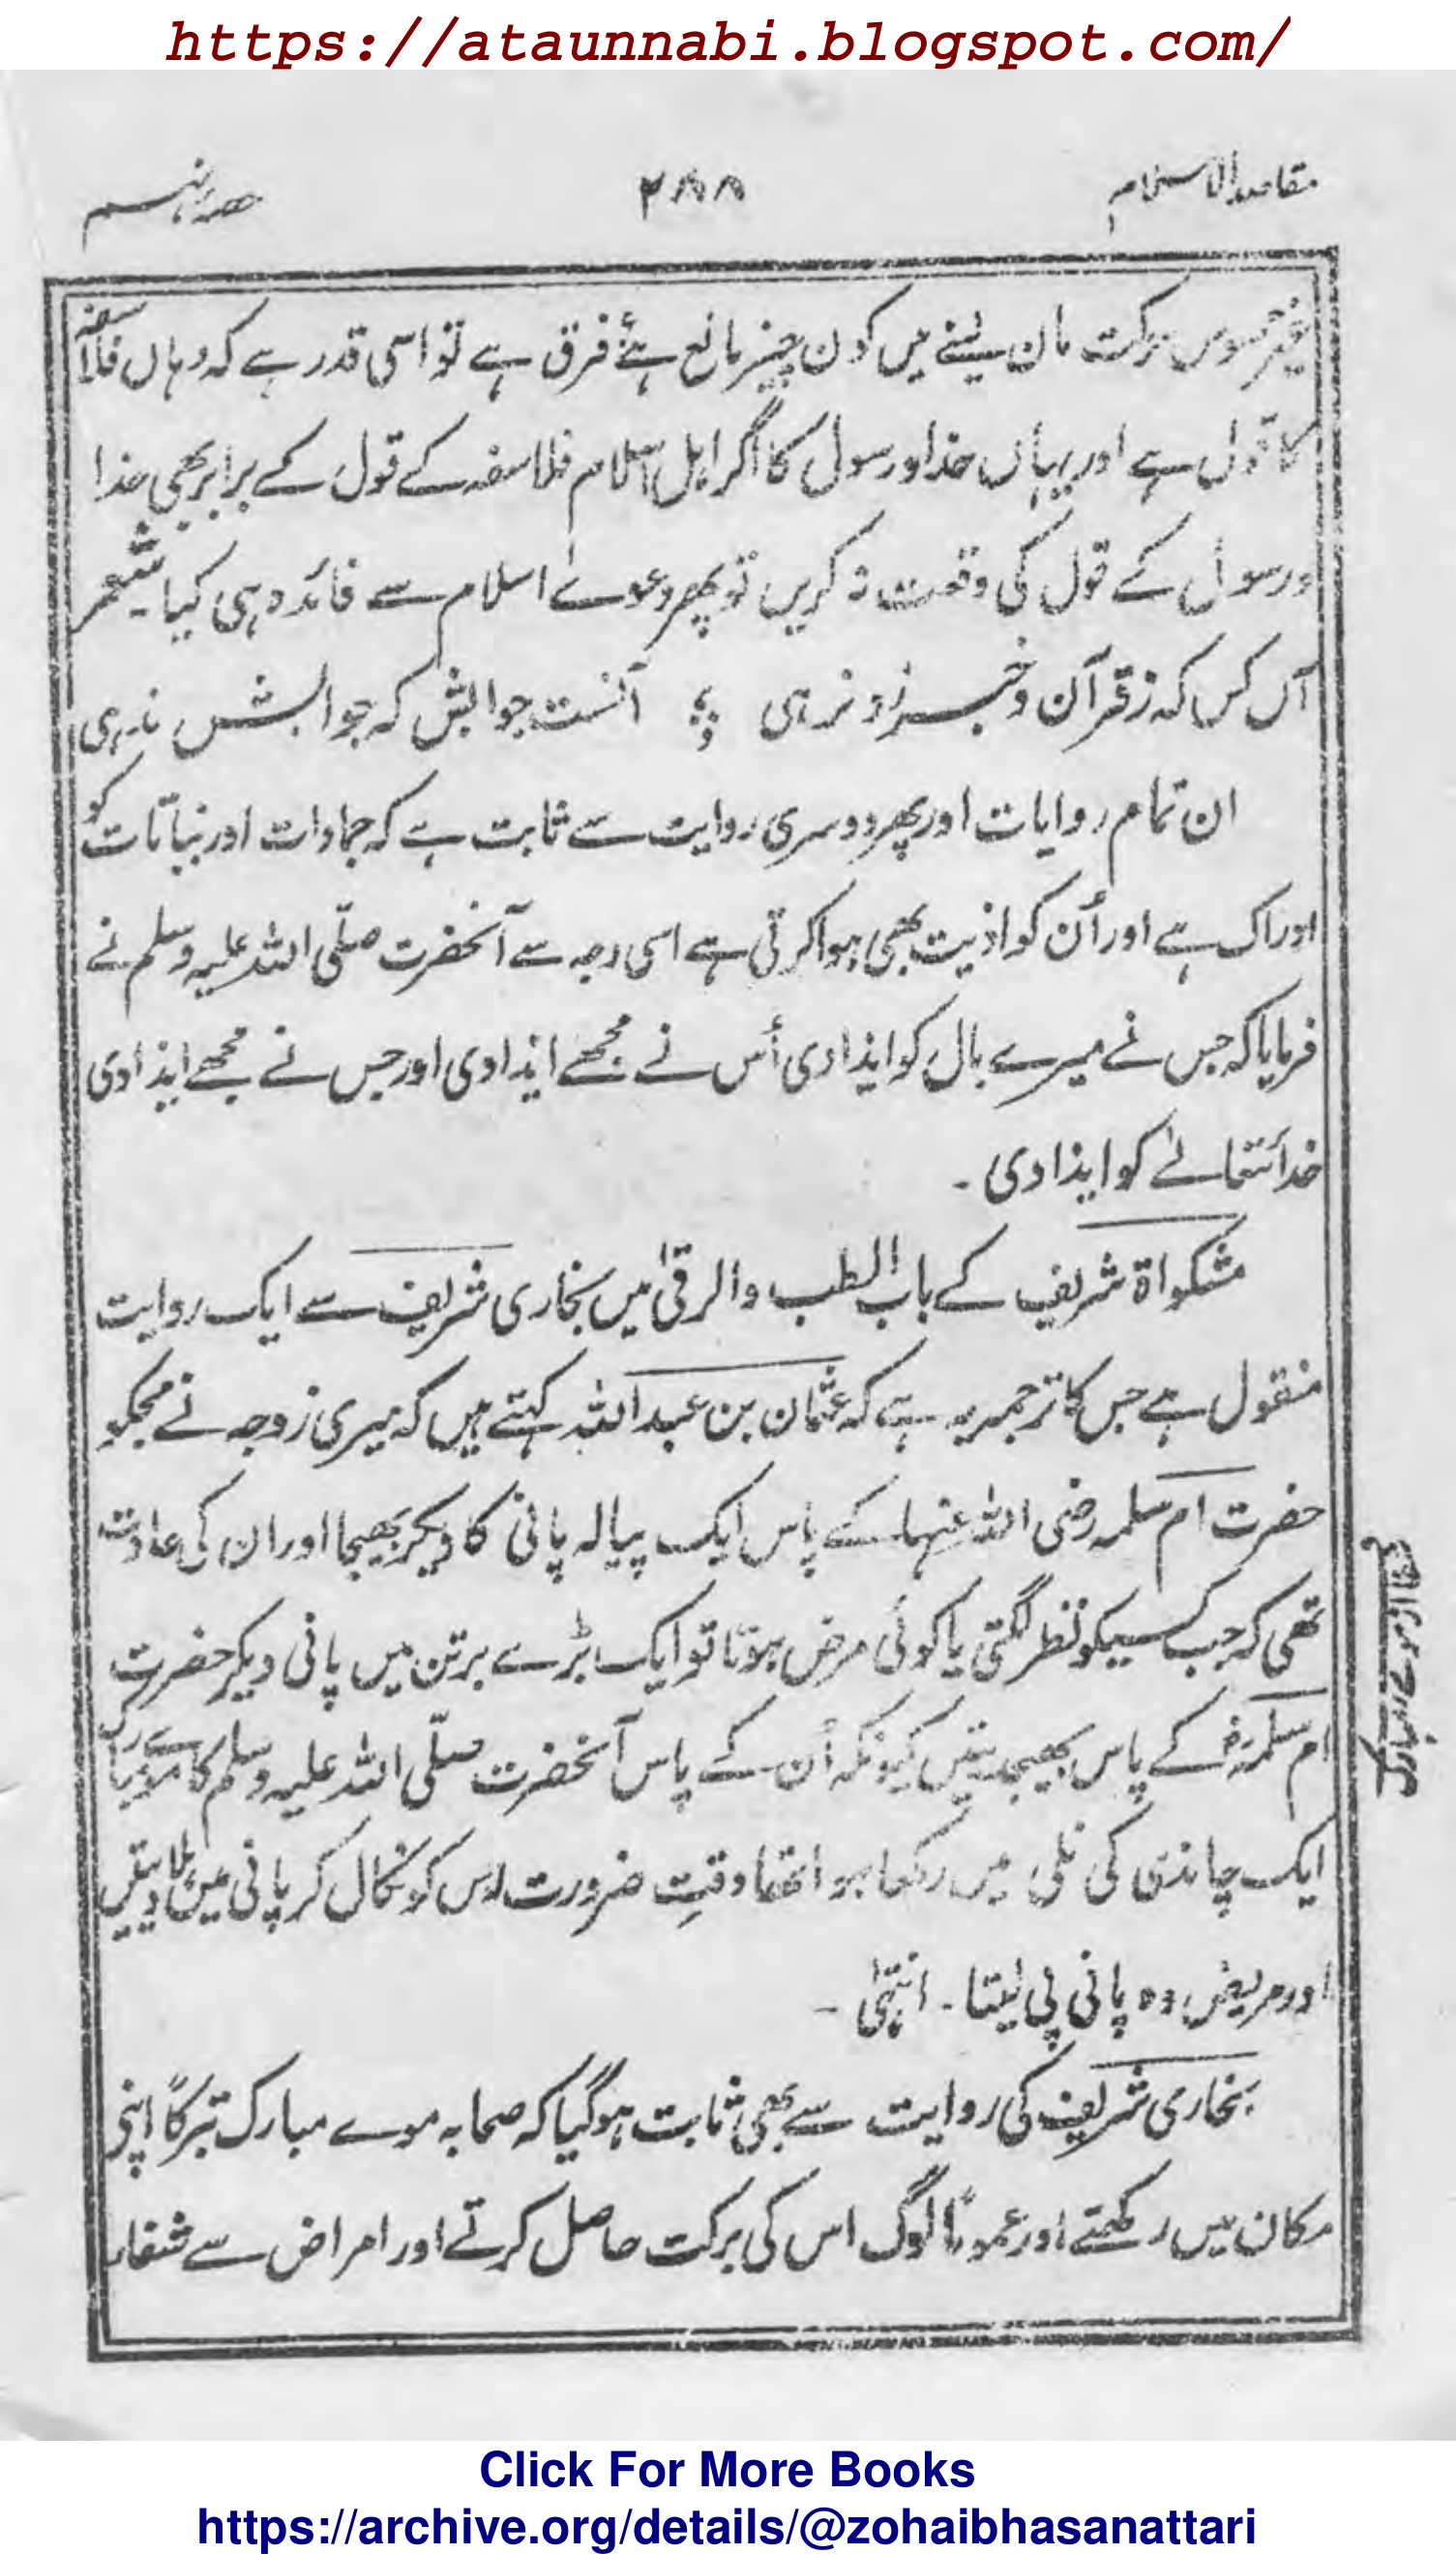 https://ataunnabi.blogspot.com/
مقاصد الاسلام
۲۸۸
حصہ نہم
غیر محسوس حرکت مان لینے میں کون چیز مانع ہے فرق ہے تو اسی قدر ہے کہ وہاں فلاسفہ
کا قول ہے اور یہاں خدا ورسول کا اگر اہل اسلام فلاسفہ کے قول کے برابر بھی خدا
ورسول کے قول کی وقعت نہ کریں تو پھر دعوے اسلام سے فائدہ ہی کیا۔ شعر
آں کس کہ ز قرآن و خبر زو نرہی ؛ آنست جوابش کہ جوابش ندہی
ان تمام روایات اور پھر دوسری روایت سے ثابت ہے کہ جمادات اور نباتات کو
ادراک ہے اور اُن کو اذیت بھی ہوا کرتی ہے اسی وجہ سے آنحضرت صلّی اللہ علیہ وسلم نے
فرمایا کہ جس نے میرے بال کو ایذا دی اُس نے مجھے ایذا دی اور جس نے مجھے ایذا دی
خدائتعالےٰ کو ایذا دی ۔
مشکواۃ شریف کے باب الطب والرقیٰ میں بخاری شریف سے ایک روایت
منقول ہے جس کا ترجمہ یہ ہے کہ عثمان بن عبد اللہ کہتے ہیں کہ میری زوجہ نے مجکو
حضرت ام سلمہ رضی اللہ عنہا کے پاس ایک پیالہ پانی کا دیکر بھیجا اور ان کی عادت
تھی کہ جب کسیکو نظر لگتی یا کوئی مرض ہوتا تو ایک بڑے برتن میں پانی دیکر حضرت
ام سلمہؓ کے پاس بھیجدیتیں کیونکہ اُن کے پاس آنحضرت صلّی اللہ علیہ وسلم کا موے مبارک
ایک چاندی کی نلی میں رکھا ہوا تھا وقتِ ضرورت اس کو نکال کر پانی میں ہلا دیتیں
اور مریض وہ پانی پی لیتا ۔ انتہیٰ ۔
شفا از موے مبارک
بخاری شریف کی روایت سے بھی ثابت ہوگیا کہ صحابہ موے مبارک تبرکاً اپنی
مکان میں رکھتے اور عموماً لوگ اس کی برکت حاصل کرتے اور امراض سے شفاء
Click For More Books
https://archive.org/details/@zohaibhasanattari